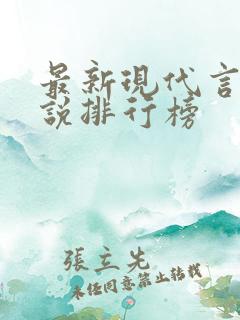 最新現代言
説排行榜
張立先
未經同意禁止轉載